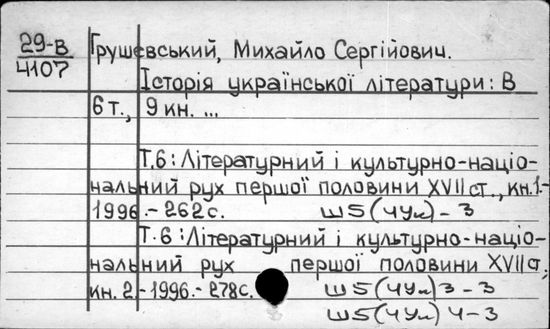 29-В Грушевський, Михайло Сергійович.
4107
Історія української літератури: В
6 т., 9 кн. ...
Т.6: Літературний і культурно-націо-
нальний рух першої половини XVII ст., кн.1.-
1996.- 262с. Ш5(4Ук)-3
Т.6: Літературний і культурно-націо-
нальний рух першої половини XVII ст,
кн. 2.-1996.- 278с. Ш5(4Ук)3-3
Ш5(4Ук) 4-3